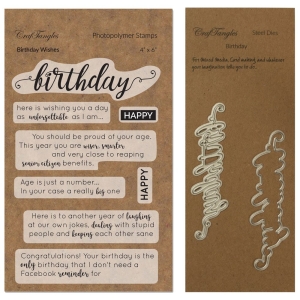 CrafTangles
Photopolymer Stamps
Birthday Wishes
4" x 6"
birthday
here is wishing you a day
as unforgettable as I am...
HAPPY
You should be proud of your age.
This year you are wiser, smarter
and very close to reaping
senior citizen benefits.
HAPPY
Age is just a number...
In your case a really big one
Here is to another year of laughing
at our own jokes, dealing with stupid
people and keeping each other sane
Congratulations! Your birthday is the
only birthday that I don't need a
Facebook reminder for
CrafTangles
Steel Dies
Birthday
For Mixed Media, Card making and whatever
your imagination takes you to do